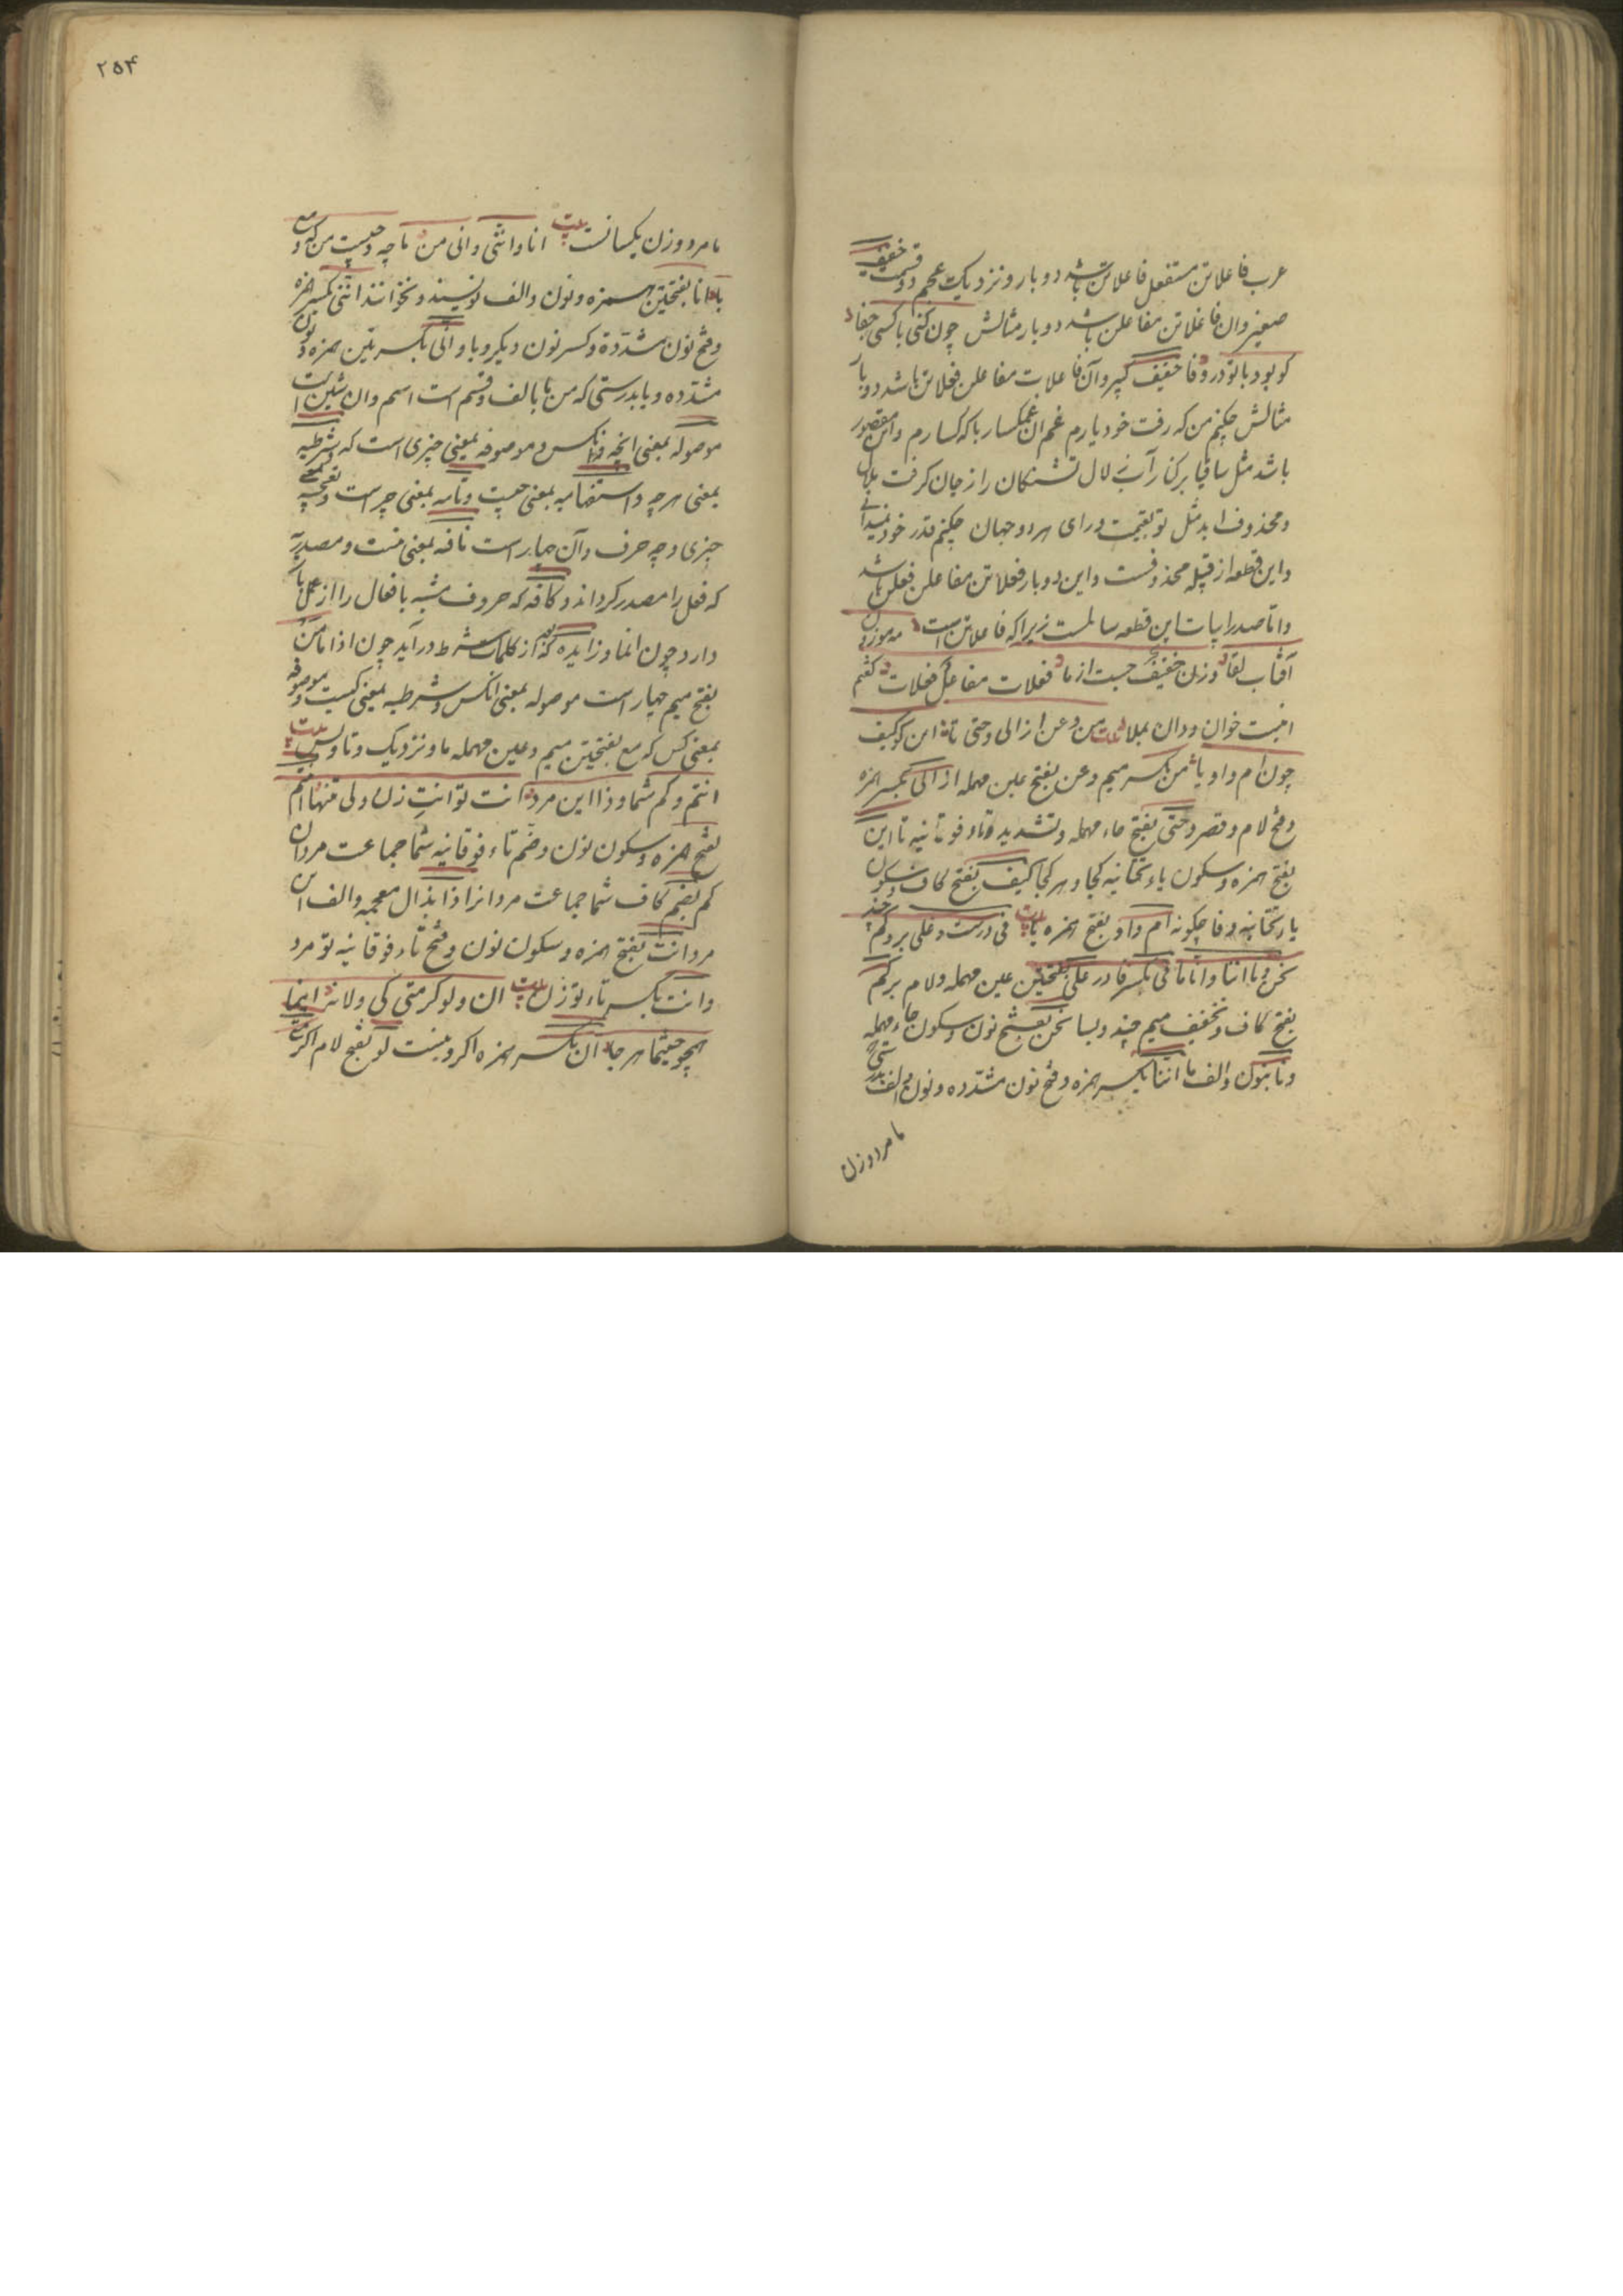 عرب فاعلاتن مستفعل فاعلاتن باشد دو بار و نزدیک عجم دو قسمت خفیف
صغیر وان فاعلاتن مفاعلن باشد دو بار مثالش چون کنی با کسی جفا
کو بود با تو در وفا خفیف کبیر وآن فاعلات مفاعلن فعلاتن باشد دو بار
مثالش چکنم من که رفت خود یارم غم ان غمکسار با که کسارم و این مقصور
باشد مثل ساقیا بر کنار آب زلال تشنکان را ز جان کرفت ملال
و محذوف اید مثل تو بقیمت ورای هر دو جهان چکنم قدر خود نمیدانی
و این قطعه از قبیله محذوفست و این دو بار فعلاتن مفاعلن فعلن باشد
و اما صدر ابیات این قطعه سالمست زیرا که فاعلاتن است مه موزون
آفتاب لقا وزن خفیف جست از ما فعلات مفاعل فعلات کفتم
اینست خوان و دان بملا من و عن از الی و حتی تا این کو کیف
چون ام و او یا من بکسر میم و عن بفتح عین مهمله از الی بکسر همزه
و فتح لام و قصر و حتی بفتح حاء مهمله و تشدید تاء فوقانیه تا این
بفتح همزه و سکون یاء تحتانیه کجا و هر کجا کیف بفتح کاف و سکون
یاء تحتانیه و فا چکونه ام و او بفتح همزه یا بیت فی درست و علی بر و کم چند
نحن و نا اننا و انا ما فی بکسر فا در علی بفتحتین عین مهمله و لام بر کم
بفتح کاف و تخفیف میم چند و بسا نحن بفتح نون و سکون حاء مهمله
و نا بنون و الف ما اننا بکسر همزه و فتح نون مشدده و نون و الف بدرستی که
ما مرد و زن
۲۵۴
ما مرد و زن یکسانست بیت انا و اننی و انی من ما چه و چیست من که و مع
با انا بفتحتین همزه و نون و الف نویسند و نخوانند اننی بکسر همزه
و فتح نون مشدده و کسر نون دیکر و یا و انی بکسرتین همزه و نون
مشدده و یا بدرستی که من ما بالف دو قسم است اسم و ان شش است
موصوله بمعنی انچه و انکس و موصوفه بمعنی چیزی است که شرطیه
بمعنی هر چه و استفهامیه بمعنی چیست و تامه بمعنی چیز است و تعجبیه بمعنی
چیزی و چه حرف و آن چهار است نافه بمعنی نیست و مصدریه
که فعل را مصدر کرداند و کافه که حروف مشبه بافعال را از عمل باز
دارد چون انما و زایده که بعد از کلمات شرط در آید چون اذا ما من
بفتح میم چهار است موصوله بمعنی انکس و شرطیه بمعنی کیست و موصوفه
بمعنی کس که مع بفتحتین میم و عین مهمله ما و نزدیک و تا و پس بیت
انتم و کم شما و ذا این مرد انت تو انتِ زن ولی منها انتم
بفتح همزه و سکون نون و ضم تاء فوقانیه شما جماعت مردان
کم بضم کاف شما جماعت مردانرا ذا بذال معجمه و الف این
مرد انت بفتح همزه و سکون نون و فتح تاء فوقانیه تو مرد
و انت بکسر تاء تو زن بیت ان و لو کر متی کی و لا نه اینما
همچو حیثما هر جا ان بکسر همزه اکر و نیست لو بفتح لام اکر